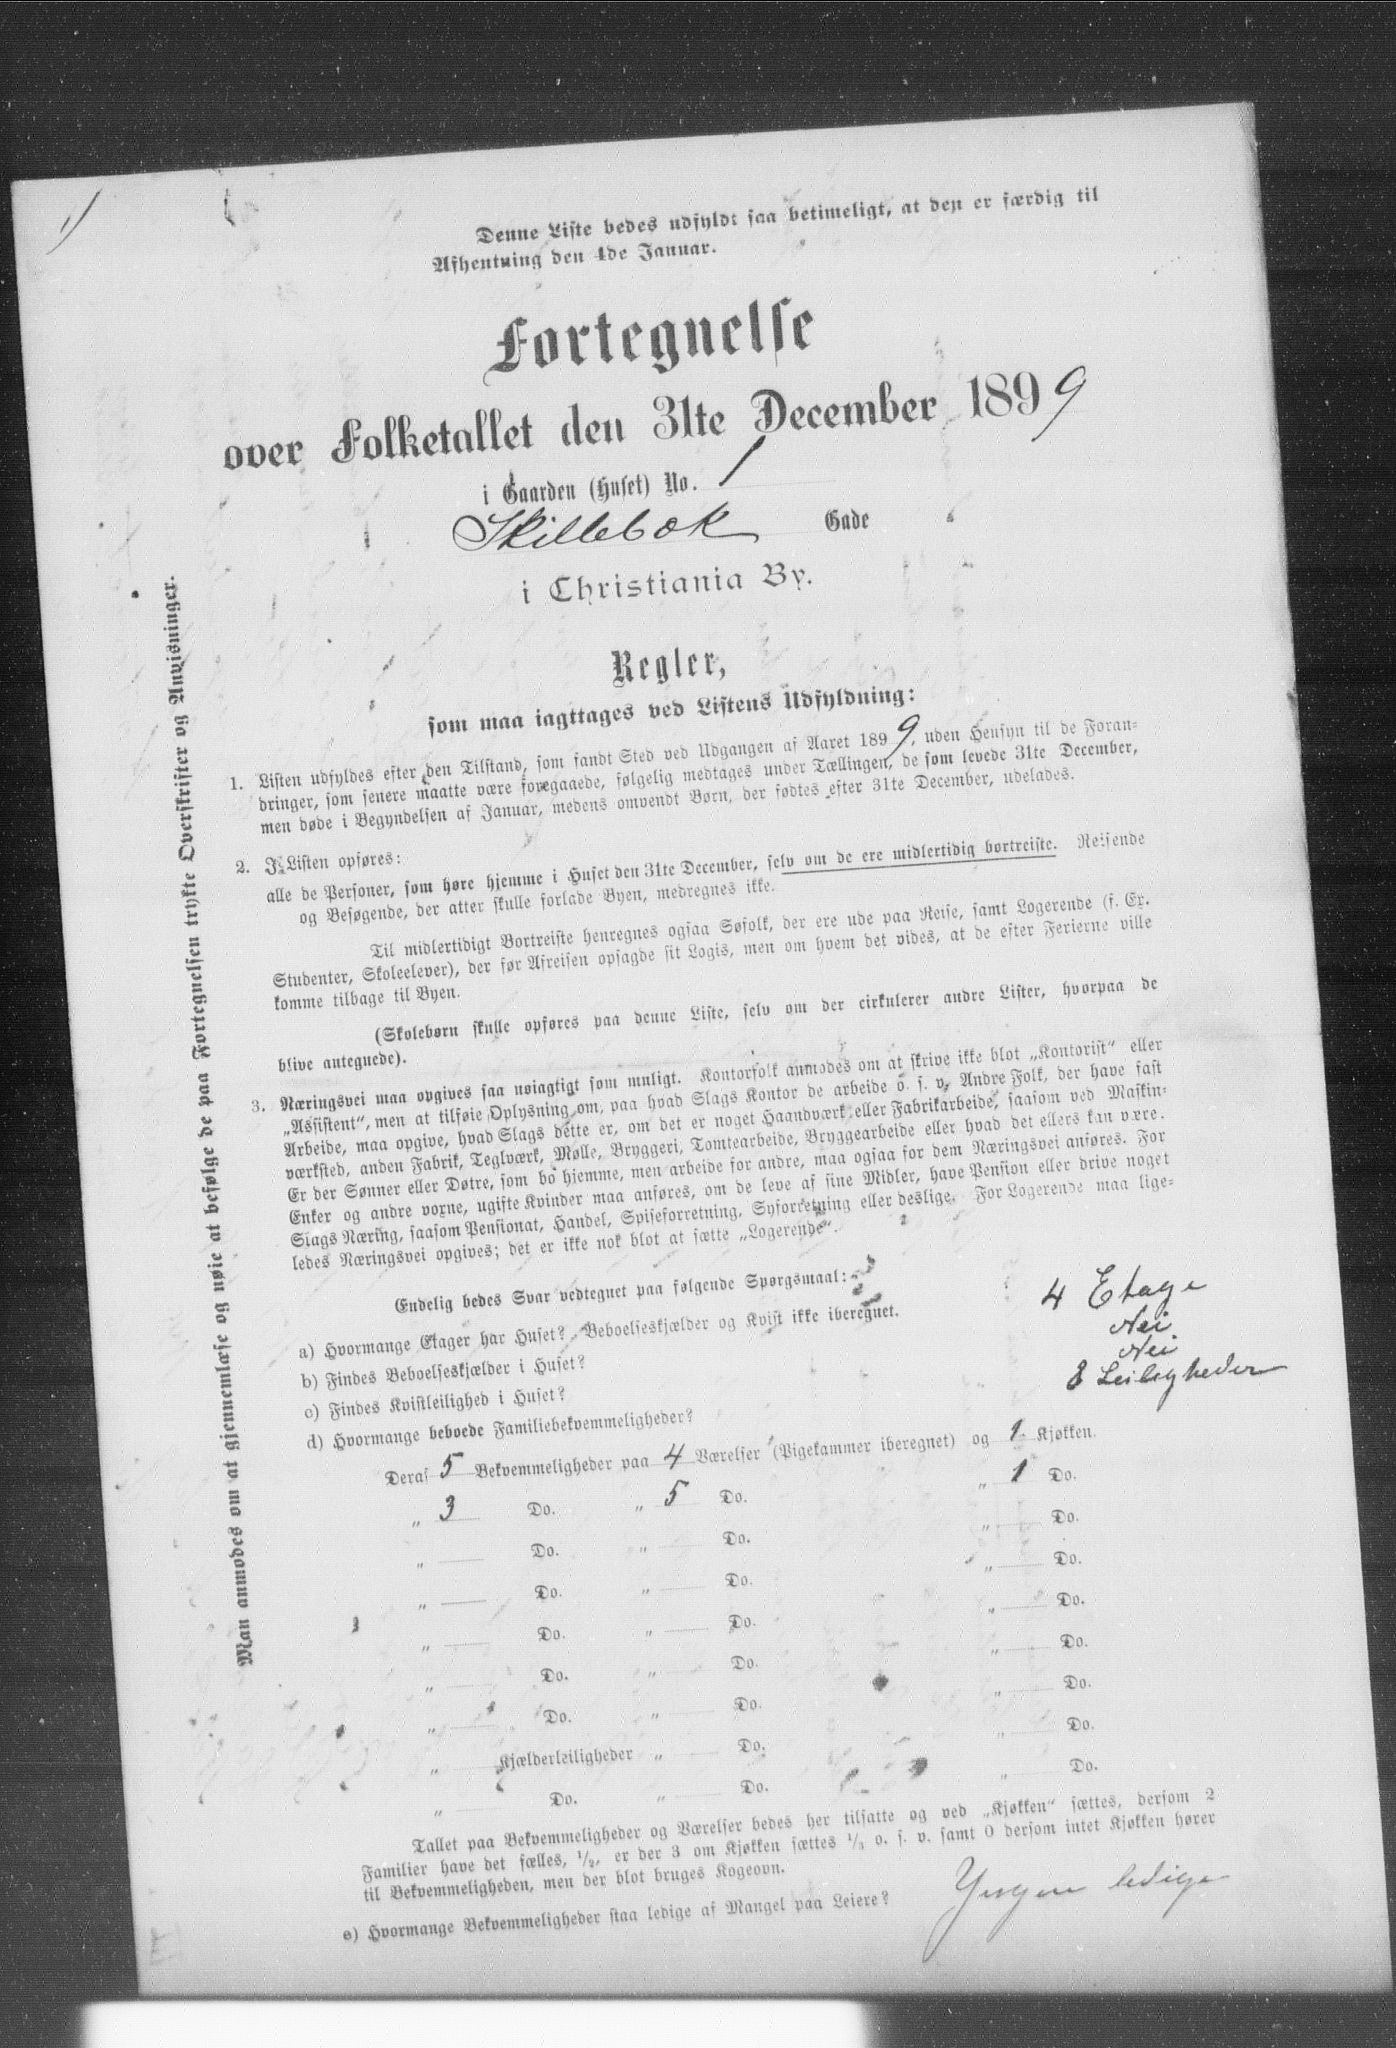 1)
Denne Liste bedes udfyldt saa betimeligt, at den er færdig til
Afhentning den 4de Januar.
Fortegnelse
over Folketallet den 31te December 1899
i Gaarden (Huset) No. 1
Skillebæk Gade
i Christiania By.
Regler,
som maa iagttages ved Listens Udfyldning:
1. Listen udfyldes efter den Tilstand, som fandt Sted ved Udgangen af Aaret 1899, uden Hensyn til de Foran-
dringer, som senere maatte være foregaaede, følgelig medtages under Tællingen, de som levede 31te December,
men døde i Begyndelsen af Januar, medens omvendt Børn, der fødtes efter 31te December, udelades.
2. I Listen opføres:
alle de Personer, som høre hjemme i Huset den 31te December, selv om de ere midlertidig bortreiste. Reisende
og Besøgende, der atter skulle forlade Byen, medregnes ikke.
Til midlertidigt Bortreiste henregnes ogsaa Søfolk, der ere ude paa Reise, samt Logerende (f. Ex.
Studenter, Skoleelever), der før Afreisen opsagde sit Logis, men om hvem det vides, at de efter Ferierne ville
komme tilbage til Byen.
(Skolebørn skulle opføres paa denne Liste, selv om der cirkulerer andre Lister, hvorpaa de
blive antegnede).
3. Næringsvei maa opgives saa nøiagtigt som muligt. Kontorfolk anmodes om at skrive ikke blot „Kontorist“ eller
„Assistent“, men at tilføie Oplysning om, paa hvad Slags Kontor de arbeide o. s. v. Andre Folk, der have fast
Arbeide, maa opgive, hvad Slags dette er, om det er noget Haandværk eller Fabrikarbeide, saasom ved Maskin-
værksted, anden Fabrik, Teglværk, Mølle, Bryggeri, Tomtearbeide, Bryggearbeide eller hvad det ellers kan være.
Er der Sønner eller Døtre, som bo hjemme, men arbeide for andre, maa ogsaa for dem Næringsvei anføres. For
Enker og andre voxne, ugifte Kvinder maa anføres, om de leve af sine Midler, have Pension eller drive noget
Slags Næring, saasom Pensionat, Handel, Spiseforretning, Syforretning eller deslige. For Logerende maa lige-
ledes Næringsvei opgives; det er ikke nok blot at sætte „Logerende“.
Endelig bedes Svar vedtegnet paa følgende Spørgsmaal:
a) Hvormange Etager har Huset? Beboelseskjælder og Kvist ikke iberegnet. 4 Etage
b) Findes Beboelseskjælder i Huset? Nei
c) Findes Kvistleilighed i Huset? Nei
d) Hvormange beboede Familiebekvemmeligheder? 8 Leiligheder
Deraf 5 Bekvemmeligheder paa 4 Værelser (Pigekammer iberegnet) og 1 Kjøkken.
„ 3 Do. „ 5 Do. „ 1 Do.
„ Do. „ Do. „ Do.
„ Do. „ Do. „ Do.
„ Do. „ Do. „ Do.
„ Do. „ Do. „ Do.
„ Do. „ Do. „ Do.
„ Kjælderleiligheder „ Do. „ Do.
„ Do. „ Do. „ Do.
Tallet paa Bekvemmeligheder og Værelser bedes her tilsatte og ved „Kjøkken“ sættes, dersom 2
Familier have det fælles, 1/2, er der 3 om Kjøkken sættes 1/3 o. s. v. samt 0 dersom intet Kjøkken hører
til Bekvemmeligheden, men der blot bruges Kogeovn.
e) Hvormange Bekvemmeligheder staa ledige af Mangel paa Leiere? Yngen ledige
Man anmodes om at gjennemlæse og nøie at befølge de paa Fortegnelsen trykte Overskrifter og Anvisninger.